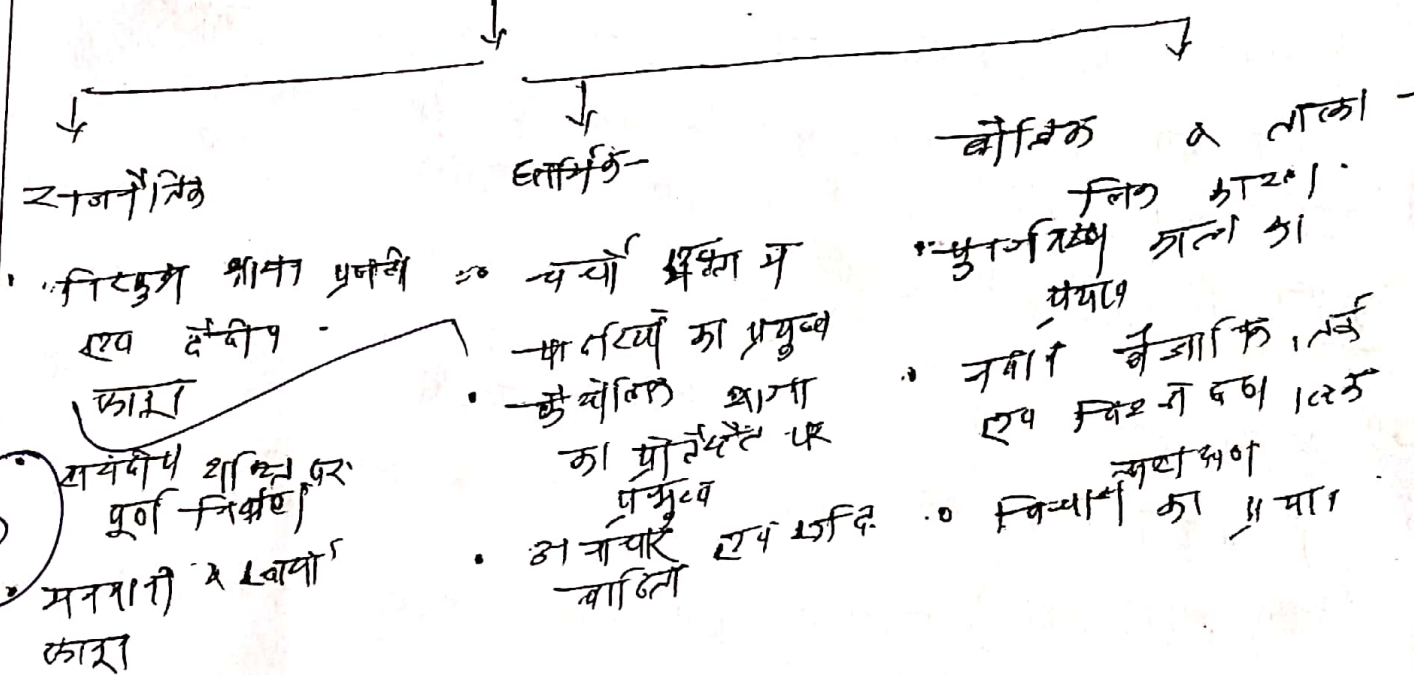 राजनैतिक
निरंकुश शासन प्रणाली
एवं दैवीय
कानून
संसदीय शक्ति पर
पूर्ण नियंत्रण
मनमानी व स्वार्थी
कानून
धार्मिक
चर्चो में
पादरियों का प्रभुत्व
कैथोलिक शाखा
का प्रोटेस्टेंट पर
प्रभुत्व
अनाचार एवं रूढि
वादिता
बौद्धिक व तात्का
लिक कारण
पुनर्जागरण काल का
प्रभाव
नवीन वैज्ञानिक, तर्क
एवं
विचारों का प्रभाव